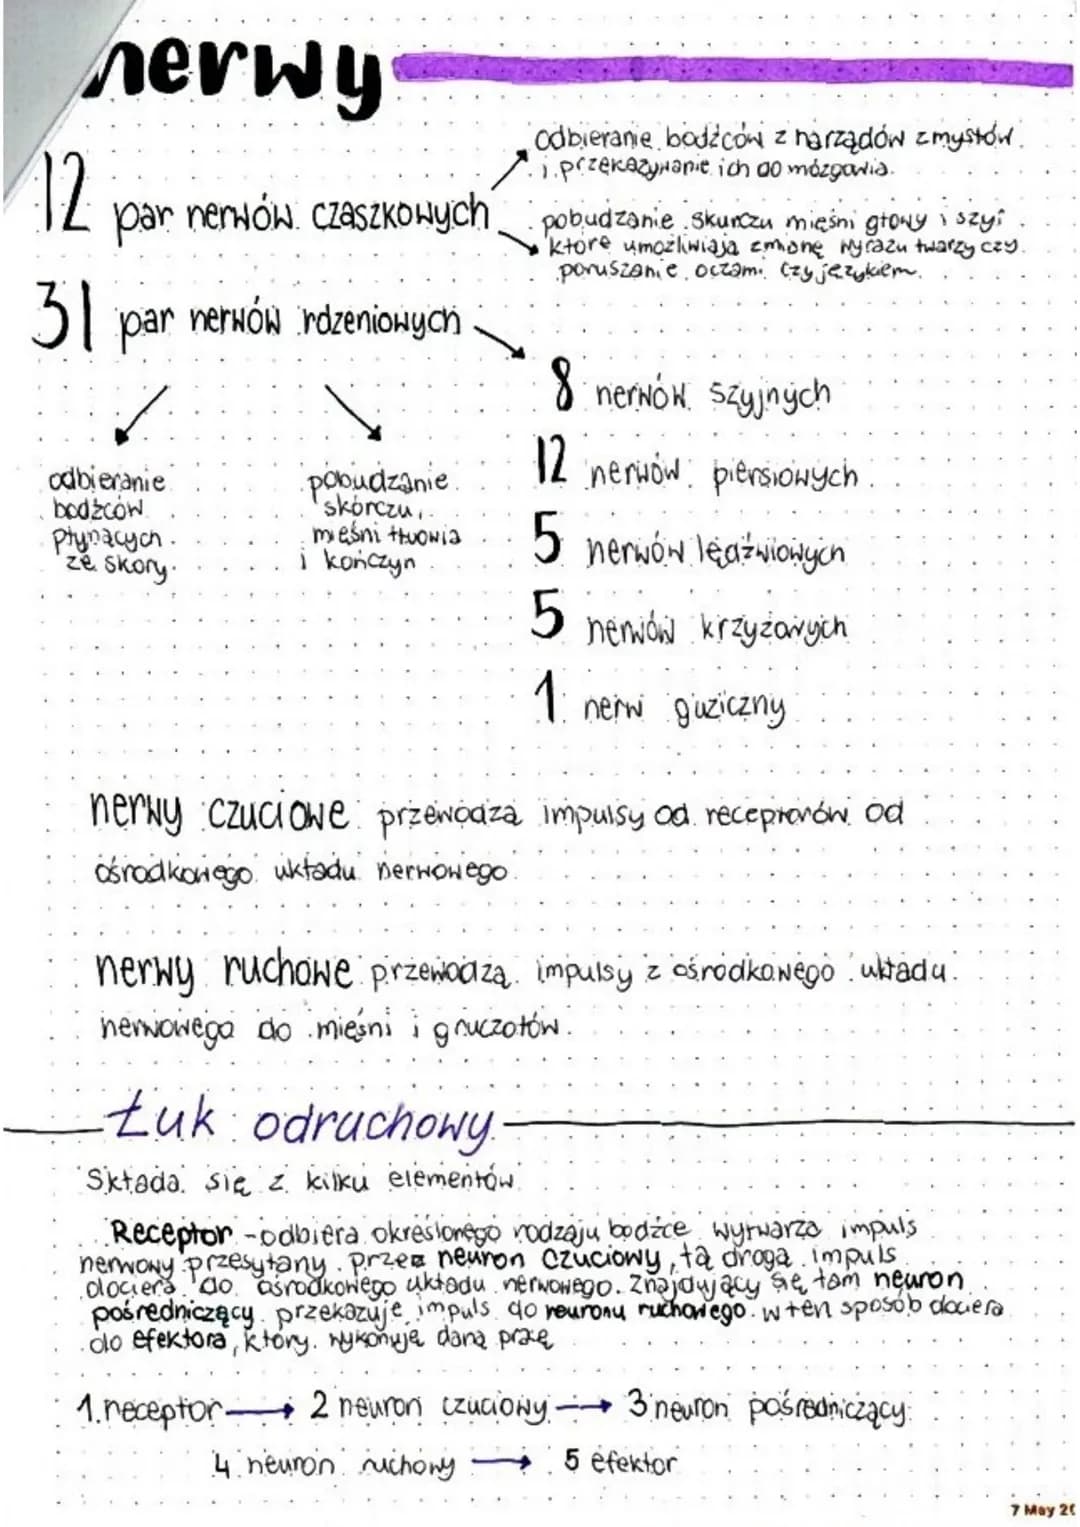 nerwy
12 par nerwów czaszkowych
odbieranie bodźców z narządów zmysłów
i przekazywanie ich do mózgowia.
pobudzanie skurczu mięśni głowy i szyi
które umożliwiają zmianę wyrazu twarzy czy
poruszanie oczami czy językiem.
31 par nerwów rdzeniowych
odbieranie
bodźców
płynących
ze skóry.
pobudzanie
skórczu,
mięśni tłuowia
i kończyn
8 nerwów szyjnych
12 nerwów piersiowych
5 nerwów lędźwiowych
5 nerwów krzyżowych
1 nerw guziczny
nerwy czuciowe przewodzą impulsy od receptorów od
ośrodkowego układu nerwowego.
nerwy ruchowe przewodzą impulsy z ośrodkowego układu
nerwowego do mięśni i gruczołów.
Łuk odruchowy
Składa się z kilku elementów
Receptor - odbiera określonego rodzaju bodźce wytwarza impuls
nerwowy przesyłany przez neuron czuciowy, tą drogą impuls
dociera do ośrodkowego układu nerwowego. Znajdujący się tam neuron
pośredniczący przekazuje impuls do neuronu ruchowego. w ten sposób dociera
do efektora, który wykonuje daną pracę
1. receptor → 2 neuron czuciowy → 3 neuron pośredniczący
4 neuron ruchowy → 5 efektor
7 May 20